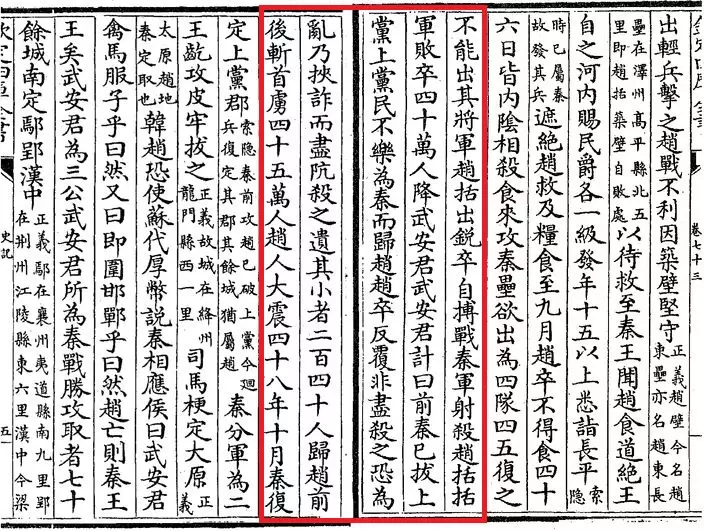 卷七十三
出輕兵擊之趙戰不利因築壁堅守正義趙壁今名趙東壘亦名趙東長
壘在澤州高平縣北五里即趙括築壁自敗處以待救至秦王聞趙食道絕王
自之河内賜民爵各一級發年十五以上悉詣長平索隱
時已屬秦故發其兵遮絕趙救及糧食至九月趙卒不得食四十
六日皆内陰相殺食來攻秦壘欲出為四隊四五復之
不能出其將軍趙括出銳卒自搏戰秦軍射殺趙括括
軍敗卒四十萬人降武安君武安君計曰前秦已拔上
黨上黨民不樂為秦而歸趙趙卒反覆非盡殺之恐為
亂乃挾詐而盡阬殺之遺其小者二百四十人歸趙前
後斬首虜四十五萬人趙人大震四十八年十月秦復
定上黨郡索隱秦前攻趙已破上黨今迴兵復定其郡其餘城猶屬趙秦分軍為二
王齕攻皮牢拔之正義故城在絳州龍門縣西一里司馬梗定大原正義
太原趙地秦定取也韓趙恐使蘇代厚幣説秦相應侯曰武安君
禽馬服子乎曰然又曰即圍邯鄲乎曰然趙亡則秦王
王矣武安君為三公武安君所為秦戰勝攻取者七十
餘城南定鄢郢漢中正義鄢在襄州夷道縣南九里郢在荆州江陵縣東六里漢中今梁
欽定四庫全書
史記
五